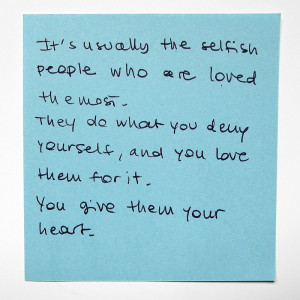 It's usually the selfish
people who are loved
the most.
They do what you deny
yourself, and you love
them for it.
You give them your
heart.